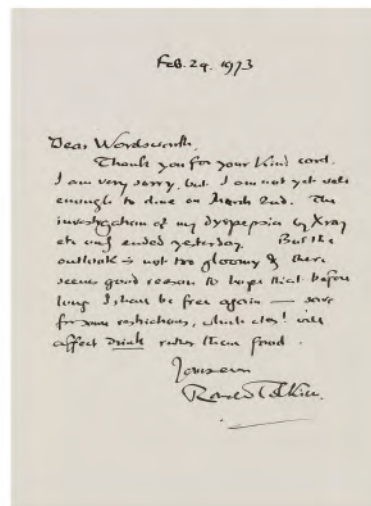 Feb. 29. 1973
Dear Wordsworth,
Thank you for your kind card.
I am very sorry, but I am not yet well
enough to dine on March 2nd. The
investigation of my dyspepsia by Xray
etc only ended yesterday. But the
outlook is not too gloomy & there
seems good reason to hope that before
long I shall be free again — save
for some restrictions, which alas! will
affect drink rather than food.
Yours ever
Ronald Tolkien.